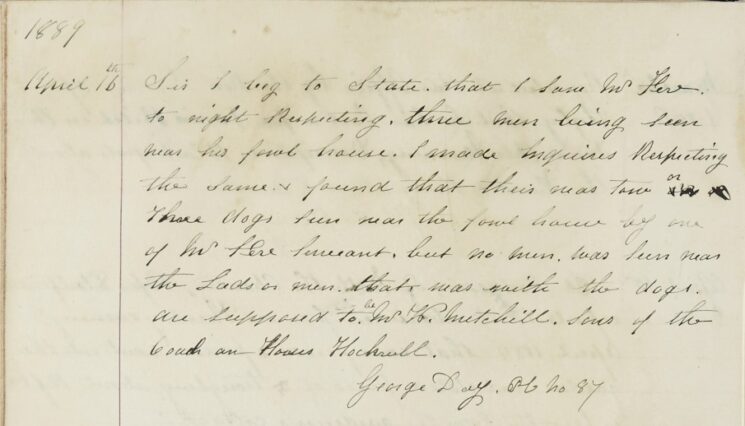 1889
April 16th Sir I beg to State. that I saw Mr Fere.
to night Respecting. three men being seen
near his fowl house. I made Inquires Respecting
the same & found that their was tow or
three dogs seen near the fowl house by one
of Mr Fere Servant. but no men. was seen near
the Lads or men. that was with the dogs.
are supposed to be Mr K. Mitchill. Sons of the
Coach an Horses Hockrell.
George Day. PC No 87